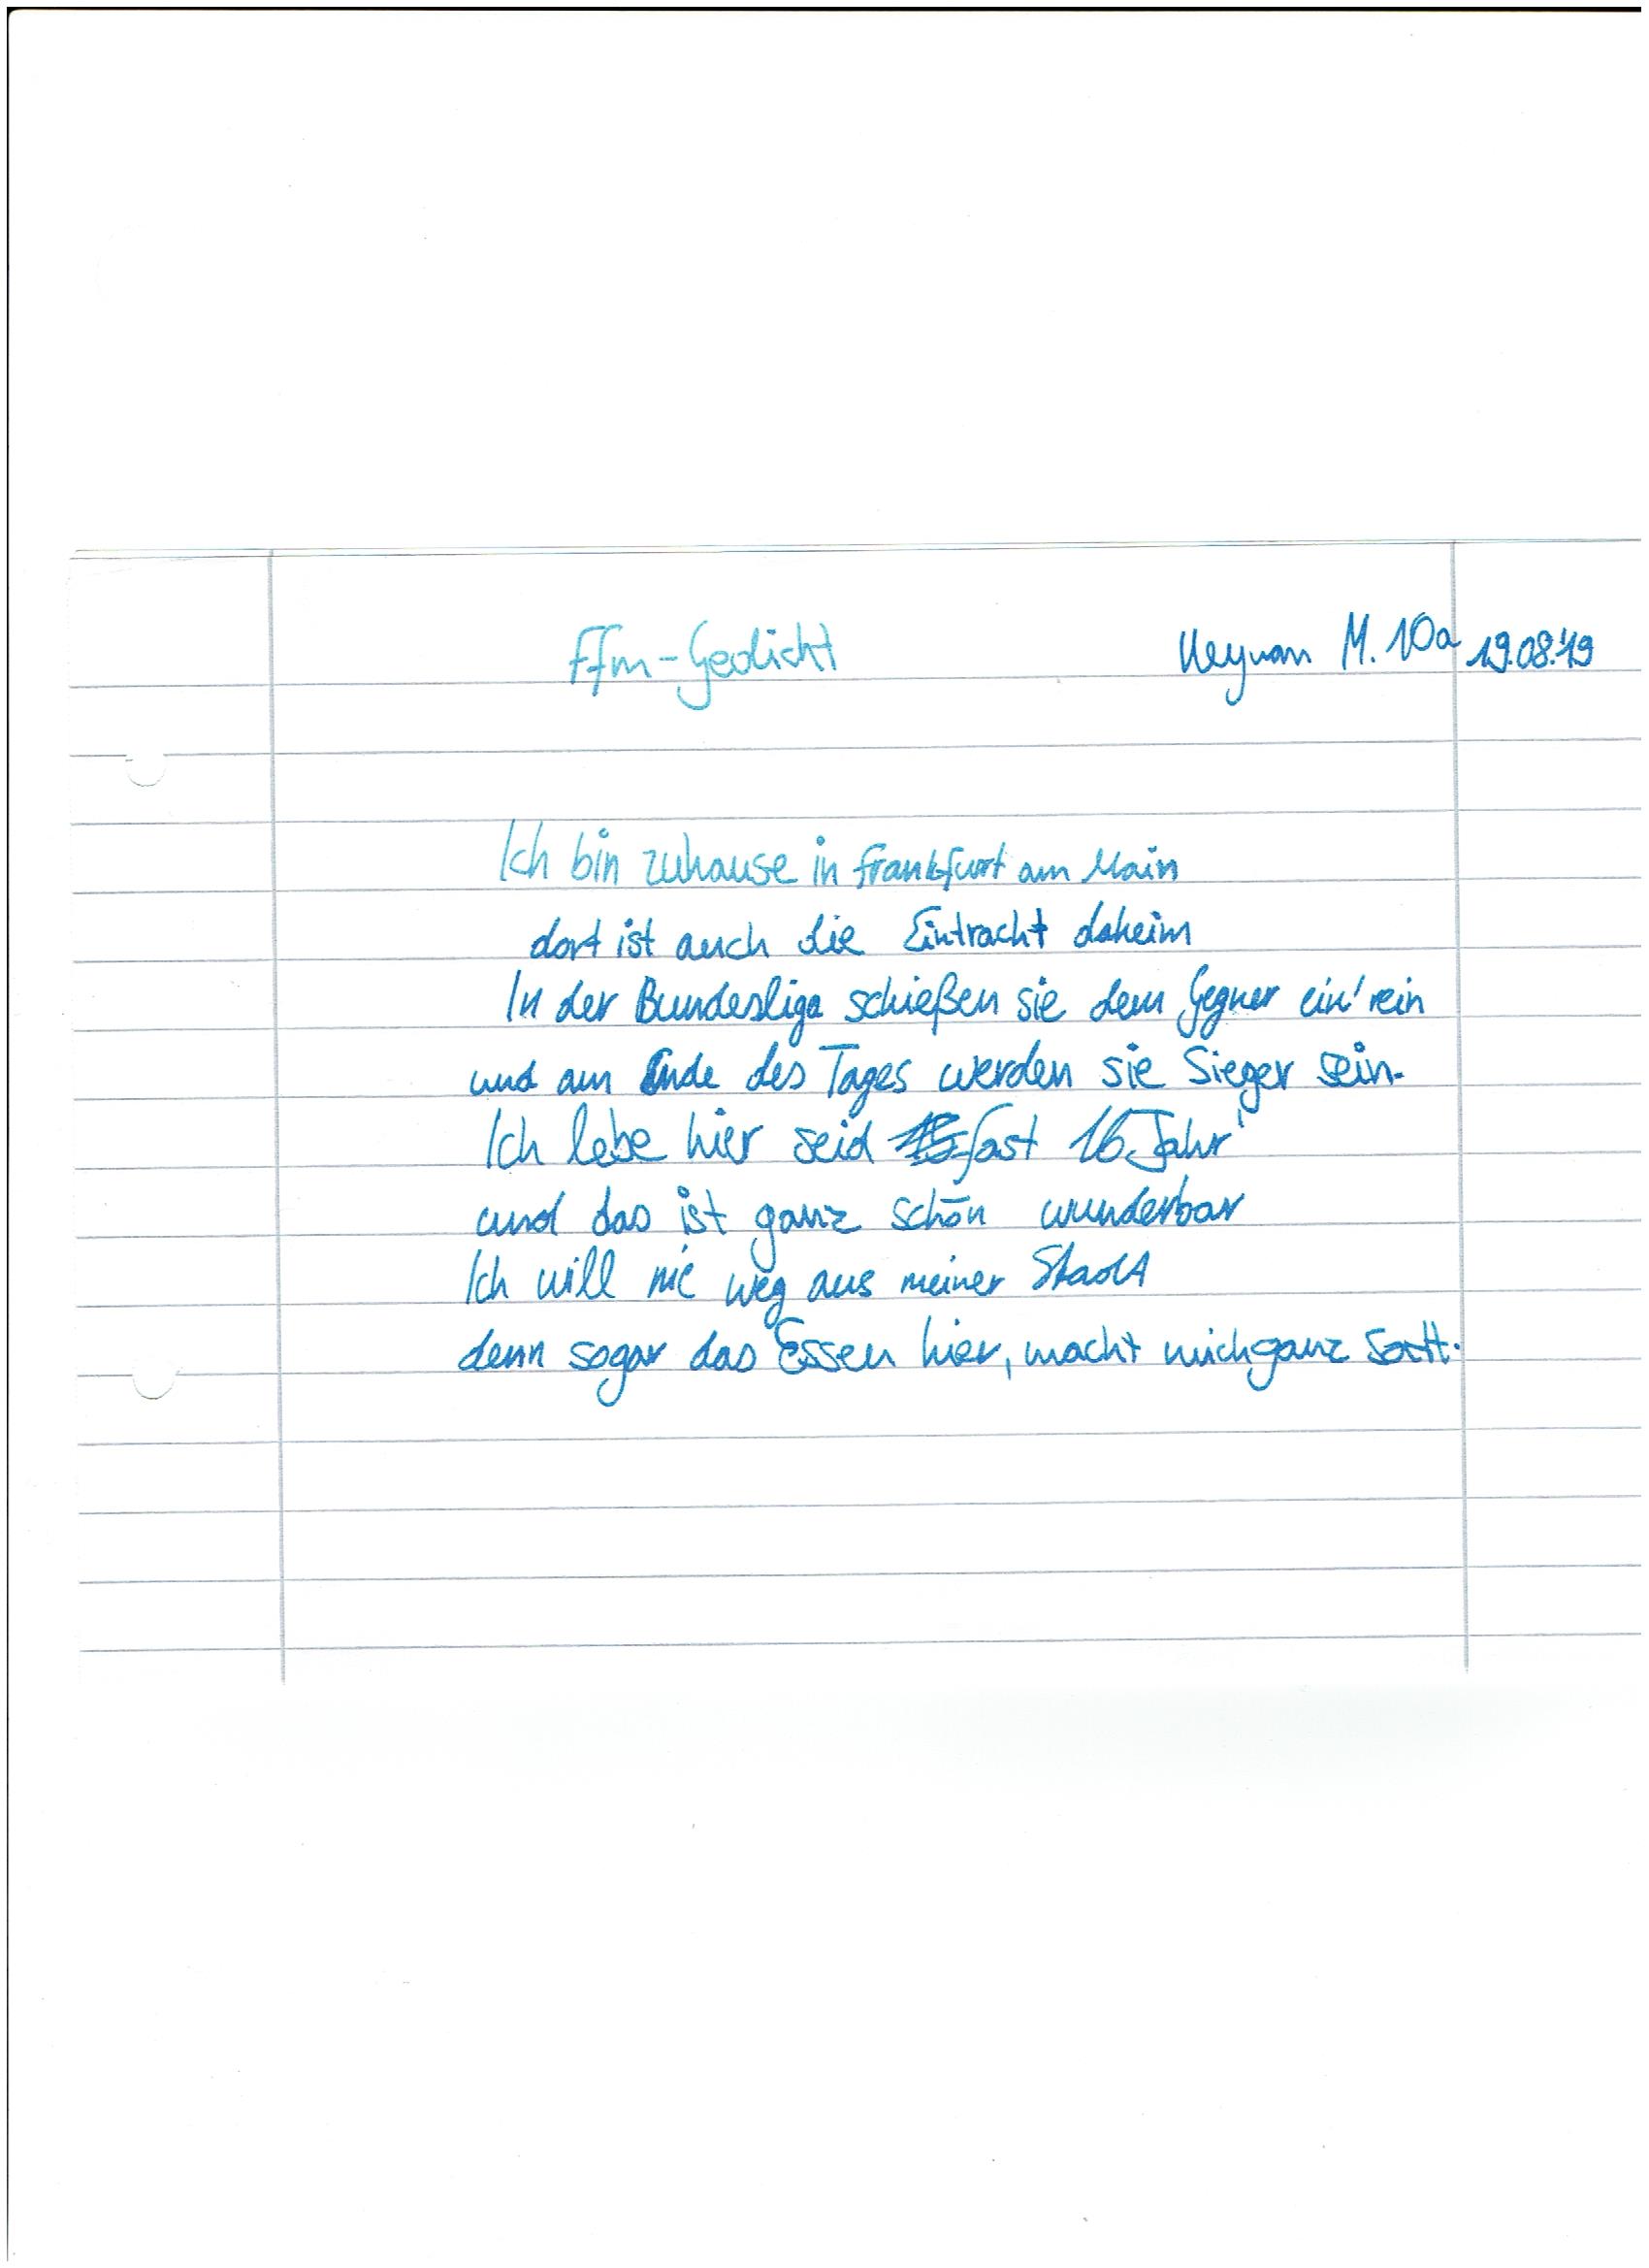 Ffm-Gedicht
Keyvan M. 10a 19.08.'19
Ich bin zuhause in Frankfurt am Main
dort ist auch die Eintracht daheim
In der Bundesliga schießen sie dem Gegner ein' rein
und am Ende des Tages werden sie Sieger sein.
Ich lebe hier seid fast 16 Jahr'
und das ist ganz schön wunderbar
Ich will nie weg aus meiner Stadt
denn sogar das Essen hier, macht mich ganz satt.